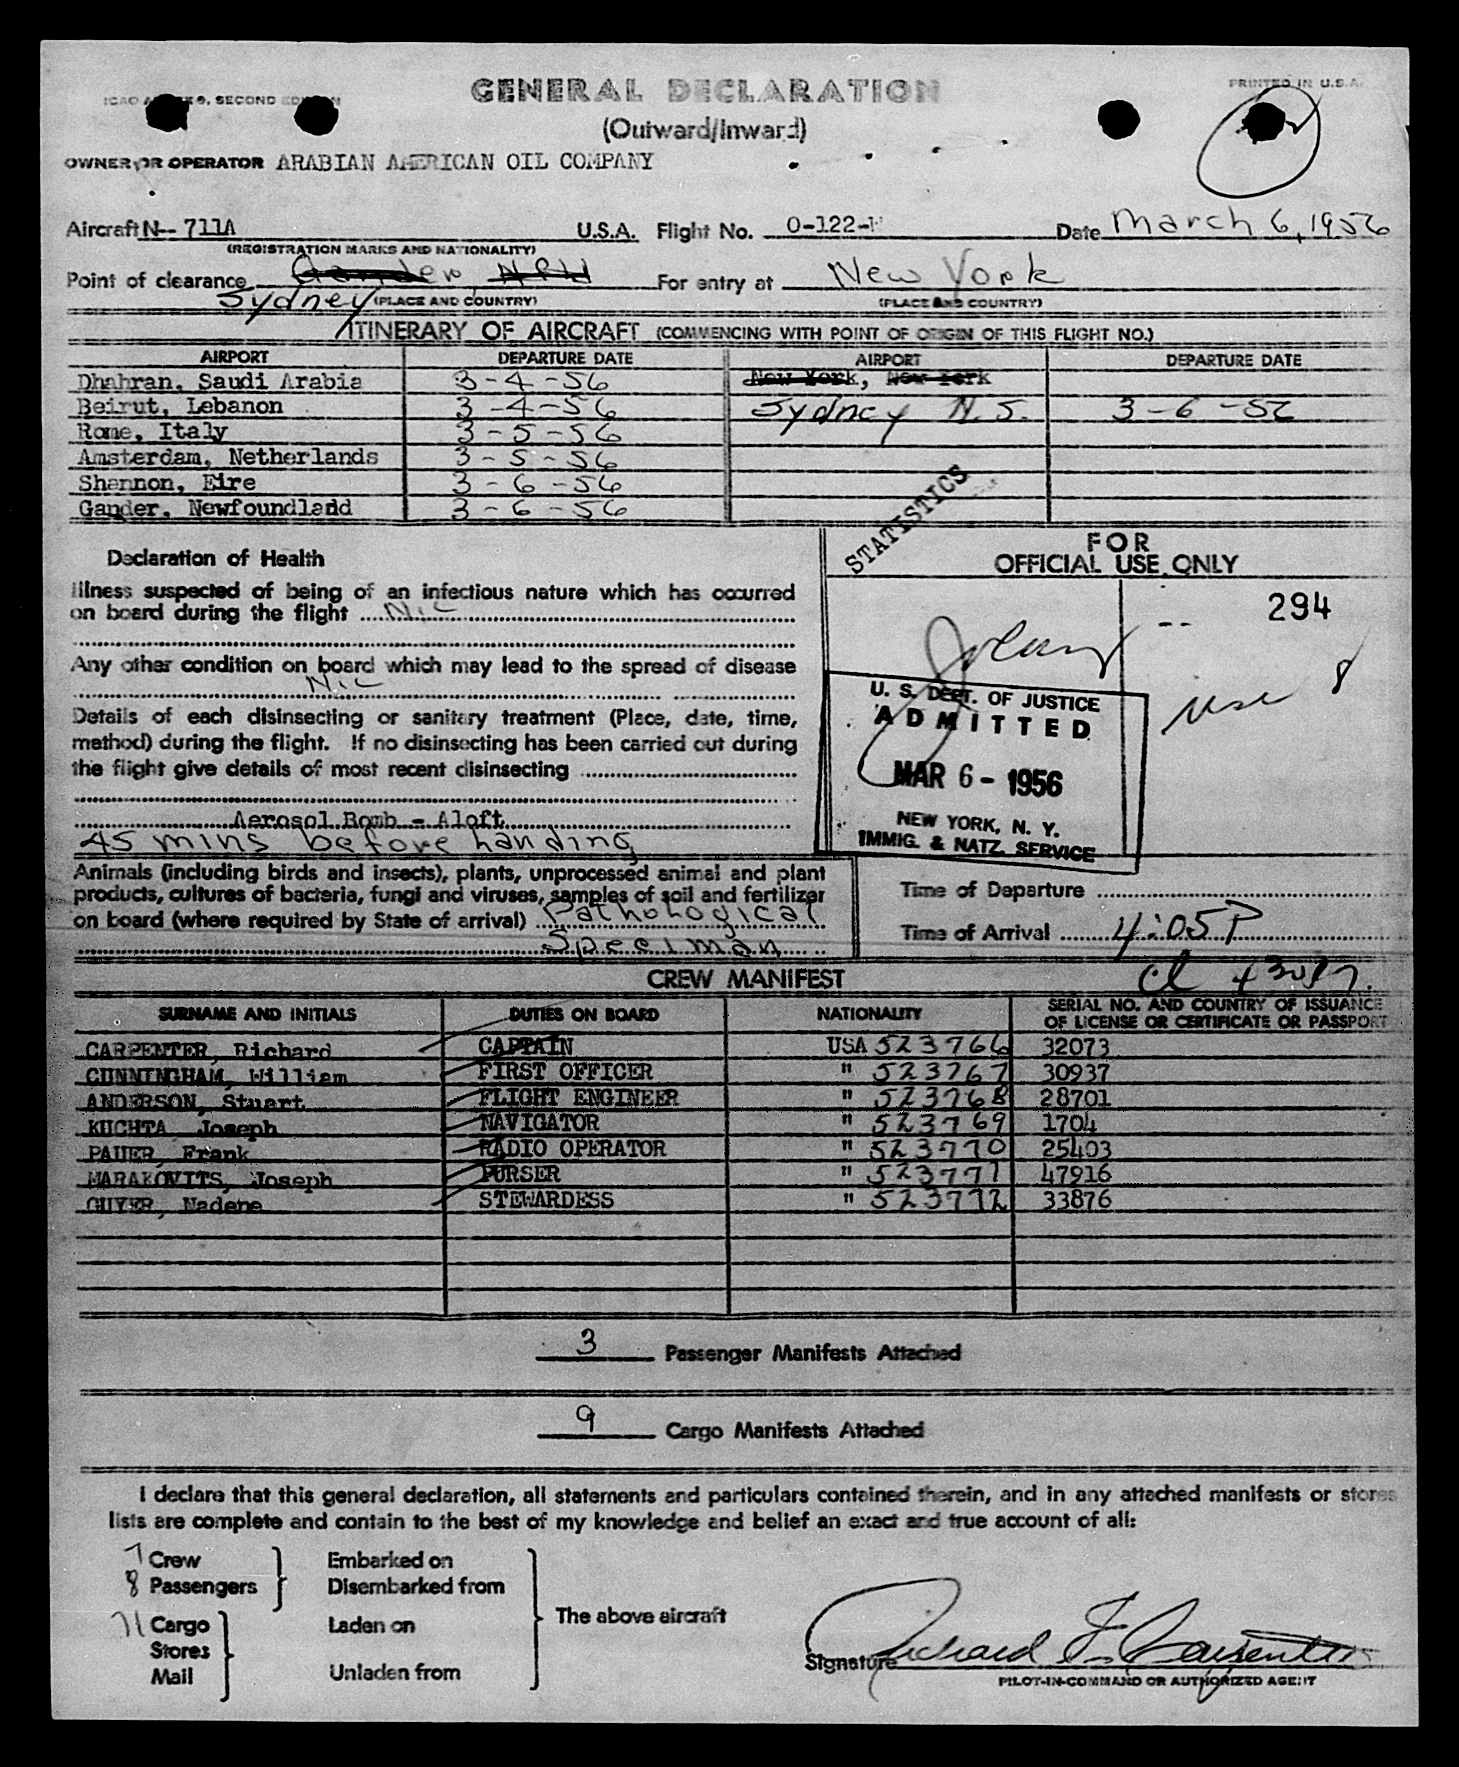 GENERAL DECLARATION
(Outward/Inward)
SECOND EDITION
PRINTED IN U.S.A.
OWNER OR OPERATOR ARABIAN AMERICAN OIL COMPANY
Aircraft N-- 711A U.S.A. Flight No. O-122- Date March 6, 1956
(REGISTRATION MARKS AND NATIONALITY)
Point of clearance Gander, Nfld For entry at New York
Sydney (PLACE AND COUNTRY) (PLACE AND COUNTRY)
ITINERARY OF AIRCRAFT (COMMENCING WITH POINT OF ORIGIN OF THIS FLIGHT NO.)
AIRPORT DEPARTURE DATE AIRPORT DEPARTURE DATE
Dhahran, Saudi Arabia 3-4-56 New York, New York
Beirut, Lebanon 3-4-56 Sydney N.S. 3-6-56
Rome, Italy 3-5-56
Amsterdam, Netherlands 3-5-56
Shannon, Eire 3-6-56
Gander, Newfoundladd 3-6-56
STATISTICS
Declaration of Health
FOR
OFFICIAL USE ONLY
Illness suspected of being of an infectious nature which has occurred
on board during the flight Nil
294
Any other condition on board which may lead to the spread of disease
Nil
8
U. S. DEPT. OF JUSTICE
ADMITTED
MAR 6 - 1956
NEW YORK, N. Y.
IMMIG. & NATZ. SERVICE
Details of each disinsecting or sanitary treatment (Place, date, time,
method) during the flight. If no disinsecting has been carried out during
the flight give details of most recent disinsecting
Aerosol Bomb - Aloft
45 mins before handing
Animals (including birds and insects), plants, unprocessed animal and plant
products, cultures of bacteria, fungi and viruses, samples of soil and fertilizer
on board (where required by State of arrival) Pathological
Speciman
Time of Departure
Time of Arrival 4:05P
CREW MANIFEST
SURNAME AND INITIALS DUTIES ON BOARD NATIONALITY SERIAL NO. AND COUNTRY OF ISSUANCE
OF LICENSE OR CERTIFICATE OR PASSPORT
CARPENTER, Richard CAPTAIN USA 523766 32073
CUNNINGHAM, William FIRST OFFICER " 523767 30937
ANDERSON, Stuart FLIGHT ENGINEER " 523768 28701
KUCHTA, Joseph NAVIGATOR " 523769 1704
PAUER, Frank RADIO OPERATOR " 523770 25403
MARAKOVITS, Joseph PURSER " 523771 47916
GUYER, Nadene STEWARDESS " 523772 33876
3 Passenger Manifests Attached
9 Cargo Manifests Attached
I declare that this general declaration, all statements and particulars contained therein, and in any attached manifests or stores
lists are complete and contain to the best of my knowledge and belief an exact and true account of all:
7 Crew Embarked on
8 Passengers Disembarked from
11 Cargo Laden on The above aircraft
Stores
Mail Unladen from
Signature Richard F. Carpenter
PILOT-IN-COMMAND OR AUTHORIZED AGENT